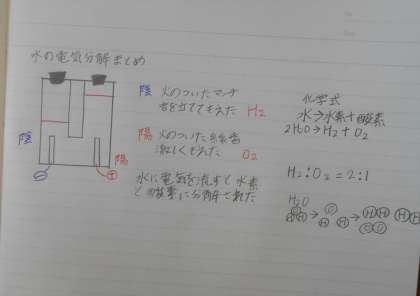 水の電気分解まとめ
陰 火のついたマッチ
音を立ててもえた H2
陽 火のついた線香
激しくもえた O2
水に電気を流すと水素
と酸素に分解された
陰
陽
−
+
化学式
水→水素+酸素
2H2O→H2+O2
H2:O2=2:1
H2O
O
H H
→
O
H H
→
HH HH
OO